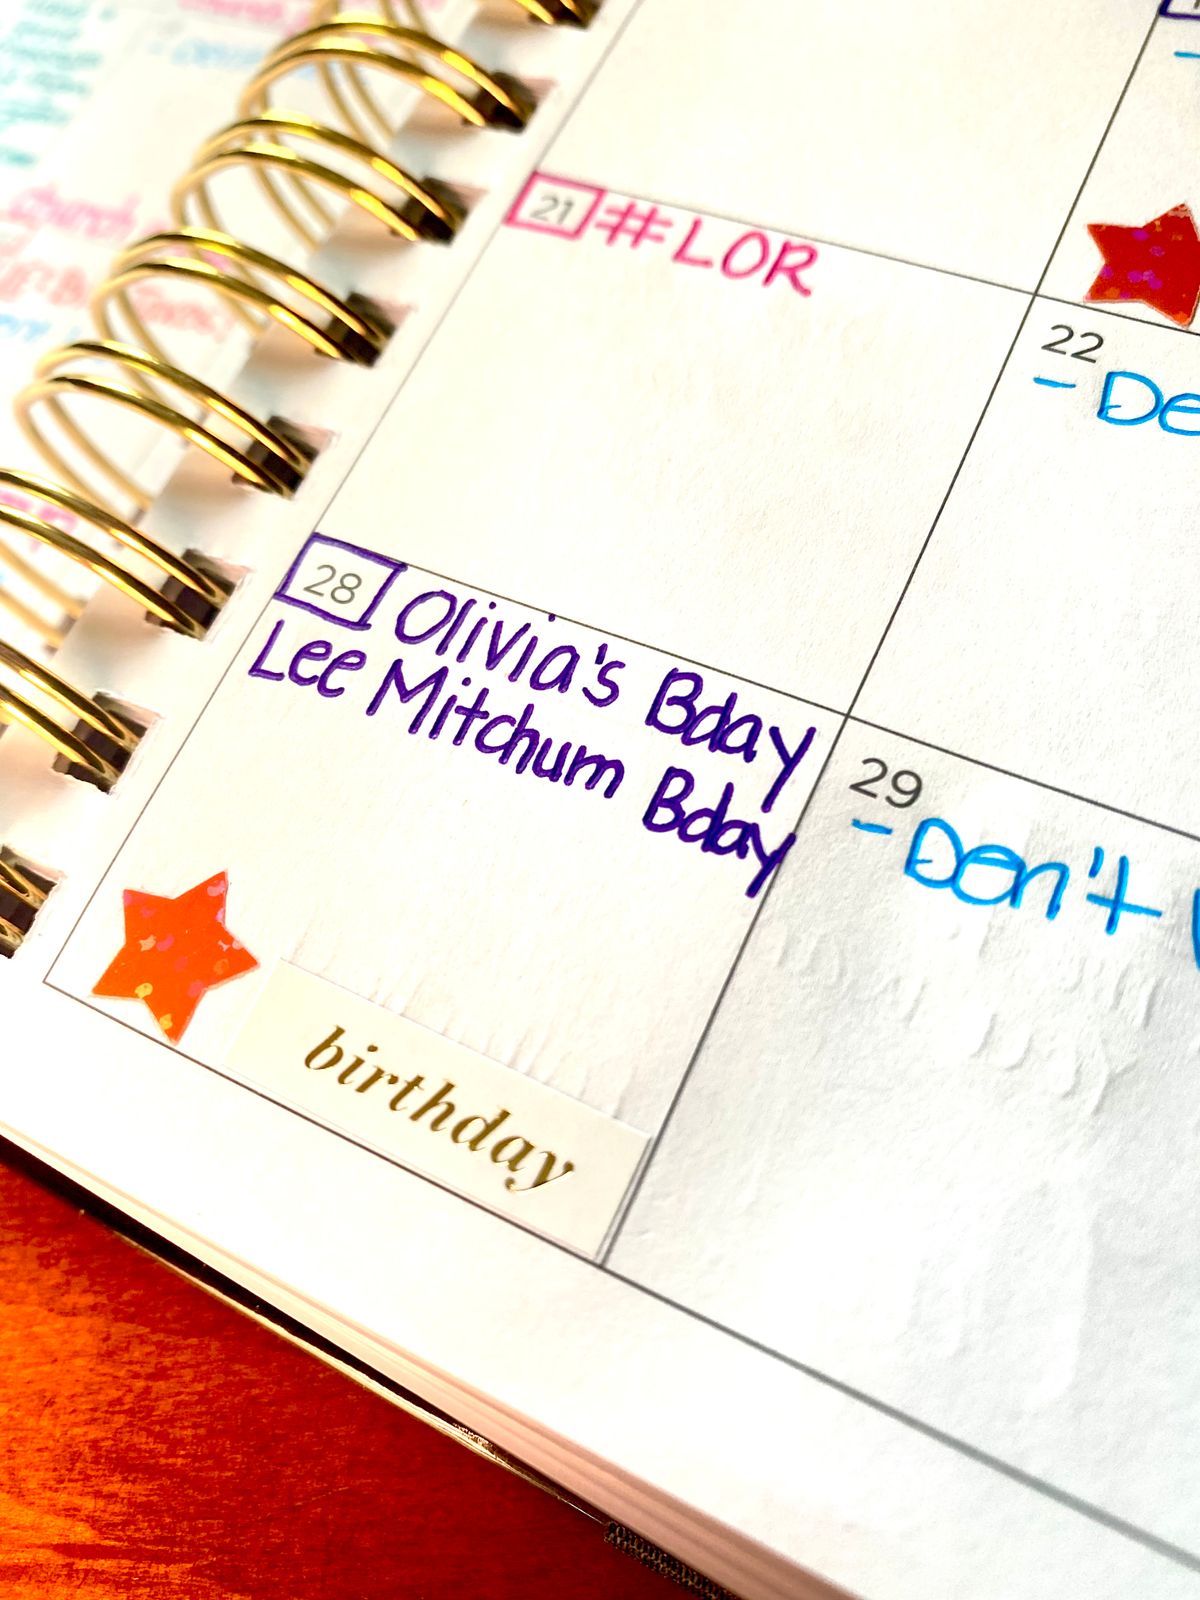 21 #LOR
22
- De
28 Olivia's Bday
Lee Mitchum Bday
29
- Den't
birthday
church